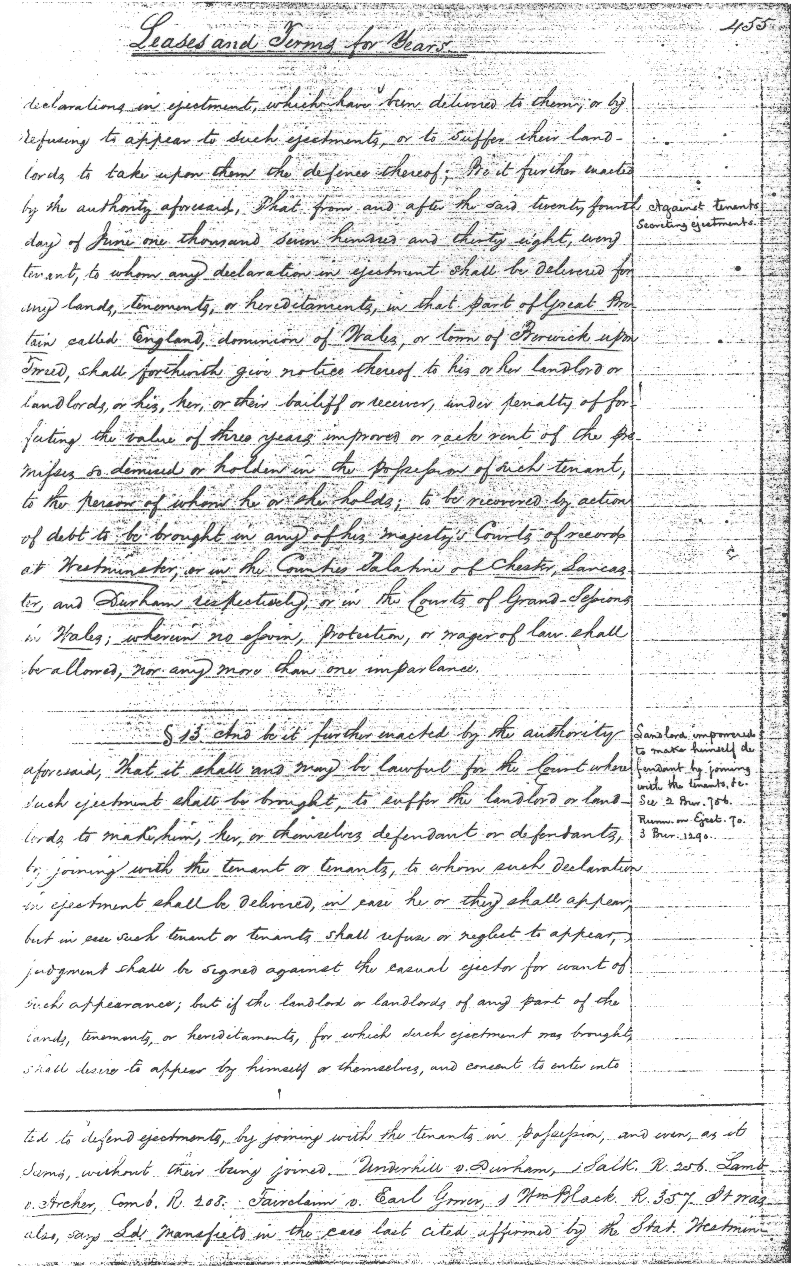 455
Leases and Terms for Years.
declarations in ejectment, which have been delivered to them, or by
refusing to appear to such ejectments, or to suffer their land-
lords to take upon them the defence thereof; Be it further enacted
by the authority aforesaid, That from and after the said twenty fourth
day of June one thousand seven hundred and thirty eight, every
tenant, to whom any declaration in ejectment shall be delivered for
any lands, tenements, or hereditaments, in that part of Great Bri-
tain called England, dominion of Wales, or town of Berwick upon
Tweed, shall forthwith give notice thereof to his or her landlord or
landlords, or his, her, or their bailiff or receiver, under penalty of for-
feiting the value of three years improved or rack rent of the pre-
misses so demised or holden in the possession of such tenant,
to the person of whom he or she holds; to be recovered by action
of debt to be brought in any of his majesty's Courts of records
at Westminster, or in the Counties Palatine of Chester, Lancas-
ter, and Durham respectively, or in the Courts of Grand-Sessions
in Wales; wherein no essoin, protection, or wager of law shall
be allowed, nor any more than one imparlance.
Against tenants
Secreting ejectments.
§ 13 And be it further enacted by the authority
aforesaid, That it shall and may be lawful for the Court where
such ejectment shall be brought, to suffer the landlord or land-
lords to make him, her, or themselves defendant or defendants,
by joining with the tenant or tenants, to whom such declaration
in ejectment shall be delivered, in case he or they shall appear,
but in case such tenant or tenants shall refuse or neglect to appear,
judgment shall be signed against the casual ejector for want of
such appearance; but if the landlord or landlords of any part of the
lands, tenements, or hereditaments, for which such ejectment was brought,
shall desire to appear by himself or themselves, and consent to enter into
Landlord impowered
to make himself de
fendant by joining
with the tenants, &c.
See 2 Bur. 756.
Runn. on Eject. 70.
3 Bur. 1290.
ted to defend ejectments, by joining with the tenants in possession, and even, as it
seems, without their being joined. Underhill v. Durham, 1 Salk. R. 256. Lamb
v. Archer, Comb. R. 208. Fairclaim v. Earl Gower, 1 Wm Black. R. 357. It was
also, says Ld. Mansfield in the case last cited affirmed by the Stat. Westmin